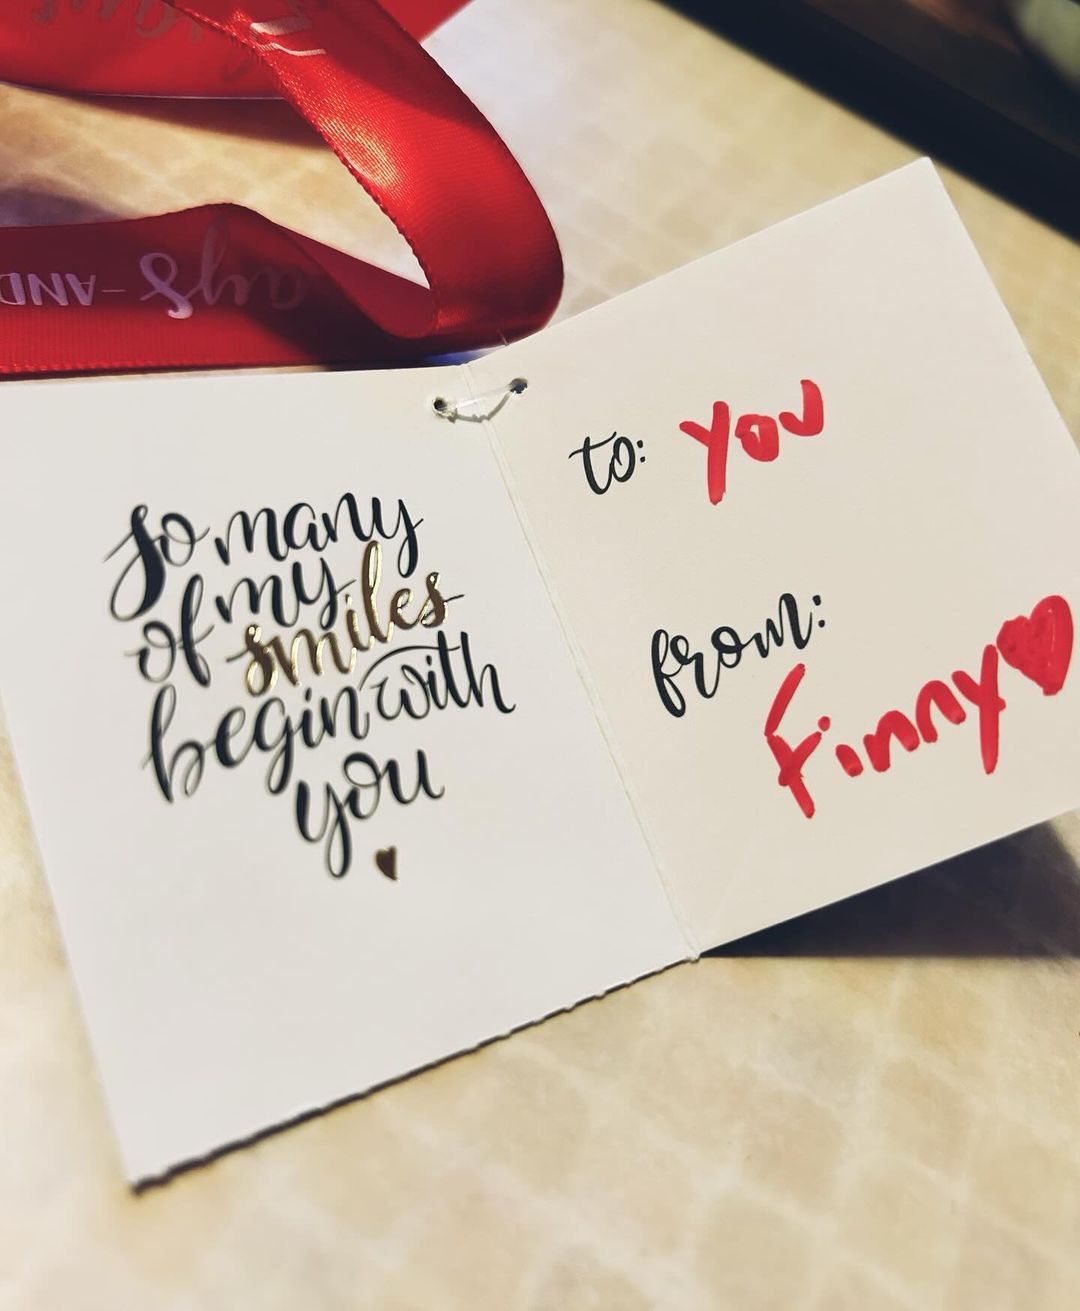 ays -AND
So many
of my
smiles
begin with
you
to: You
from:
Finny